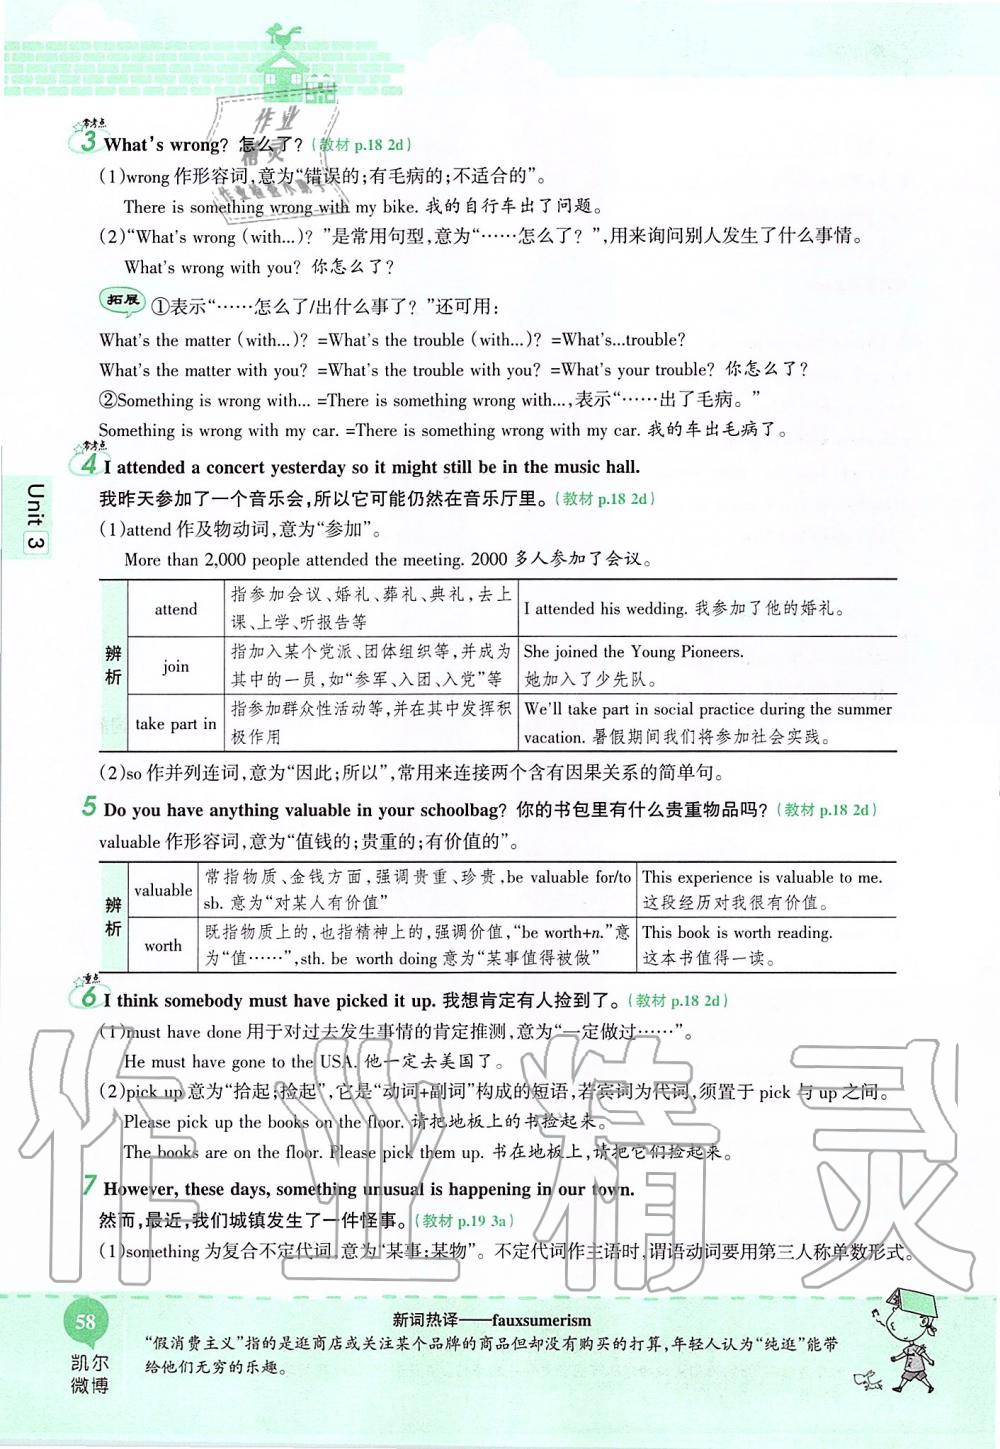 常考点
3 What's wrong? 怎么了?(教材 p.18 2d)
(1)wrong 作形容词,意为“错误的;有毛病的;不适合的”。
There is something wrong with my bike. 我的自行车出了问题。
(2)“What's wrong (with...)? ”是常用句型,意为“……怎么了? ”,用来询问别人发生了什么事情。
What's wrong with you? 你怎么了?
拓展 ①表示“……怎么了/出什么事了? ”还可用:
What's the matter (with...)? =What's the trouble (with...)? =What's...trouble?
What's the matter with you? =What's the trouble with you? =What's your trouble? 你怎么了?
②Something is wrong with... =There is something wrong with...,表示“……出了毛病。”
Something is wrong with my car. =There is something wrong with my car. 我的车出毛病了。
常考点
4 I attended a concert yesterday so it might still be in the music hall.
我昨天参加了一个音乐会,所以它可能仍然在音乐厅里。(教材 p.18 2d)
Unit 3
(1)attend 作及物动词,意为“参加”。
More than 2,000 people attended the meeting. 2000 多人参加了会议。
辨析
attend
指参加会议、婚礼、葬礼、典礼,去上
课、上学、听报告等
I attended his wedding. 我参加了他的婚礼。
join
指加入某个党派、团体组织等,并成为
其中的一员,如“参军、入团、入党”等
She joined the Young Pioneers.
她加入了少先队。
take part in
指参加群众性活动等,并在其中发挥积
极作用
We'll take part in social practice during the summer
vacation. 暑假期间我们将参加社会实践。
(2)so 作并列连词,意为“因此;所以”,常用来连接两个含有因果关系的简单句。
5 Do you have anything valuable in your schoolbag? 你的书包里有什么贵重物品吗?(教材 p.18 2d)
valuable 作形容词,意为“值钱的;贵重的;有价值的”。
辨析
valuable
常指物质、金钱方面,强调贵重、珍贵,be valuable for/to
sb. 意为“对某人有价值”
This experience is valuable to me.
这段经历对我很有价值。
worth
既指物质上的,也指精神上的,强调价值,“be worth+n.”意
为“值……”,sth. be worth doing 意为“某事值得被做”
This book is worth reading.
这本书值得一读。
重点
6 I think somebody must have picked it up. 我想肯定有人捡到了。(教材 p.18 2d)
(1)must have done 用于对过去发生事情的肯定推测,意为“一定做过……”。
He must have gone to the USA. 他一定去美国了。
(2)pick up 意为“拾起;捡起”,它是“动词+副词”构成的短语,若宾词为代词,须置于 pick 与 up 之间。
Please pick up the books on the floor. 请把地板上的书捡起来。
The books are on the floor. Please pick them up. 书在地板上,请把它们捡起来。
7 However, these days, something unusual is happening in our town.
然而,最近,我们城镇发生了一件怪事。(教材 p.19 3a)
(1)something 为复合不定代词,意为“某事;某物”。不定代词作主语时,谓语动词要用第三人称单数形式。
作业精灵
58
凯尔
微博
新词热译——fauxsumerism
“假消费主义”指的是逛商店或关注某个品牌的商品但却没有购买的打算,年轻人认为“纯逛”能带
给他们无穷的乐趣。